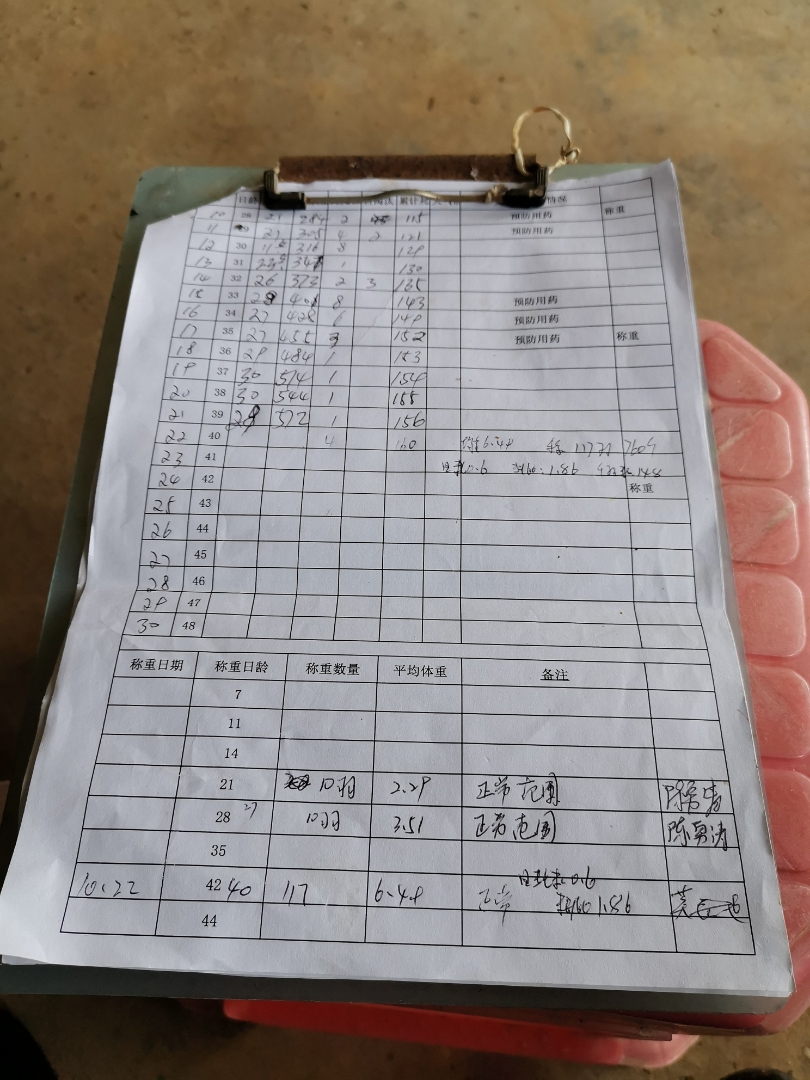 日龄 淘汰 累计死 情况
10 28 21 284 2 115 预防用药 称重
11 29 21 305 4 2 121 预防用药
12 30 8 129
13 31 1 130
14 32 26 373 2 3 135
15 33 28 401 8 143 预防用药
16 34 27 428 6 149 预防用药
17 35 27 455 3 152 预防用药 称重
18 36 29 484 1 153
19 37 30 514 1 154
20 38 30 544 1 155
21 39 28 572 1 156
22 40 4 160 6.49 117羽 760斤
23 41 0.6 1.86 148
24 42 称重
25 43
26 44
27 45
28 46
29 47
30 48
称重日期 称重日龄 称重数量 平均体重 备注
7
11
14
21 10羽 2.29 正常范围
28 27 10羽 3.51 正常范围 陈勇涛
35
0.6
10.22 42 40 117 6.49 正常 1.86
44